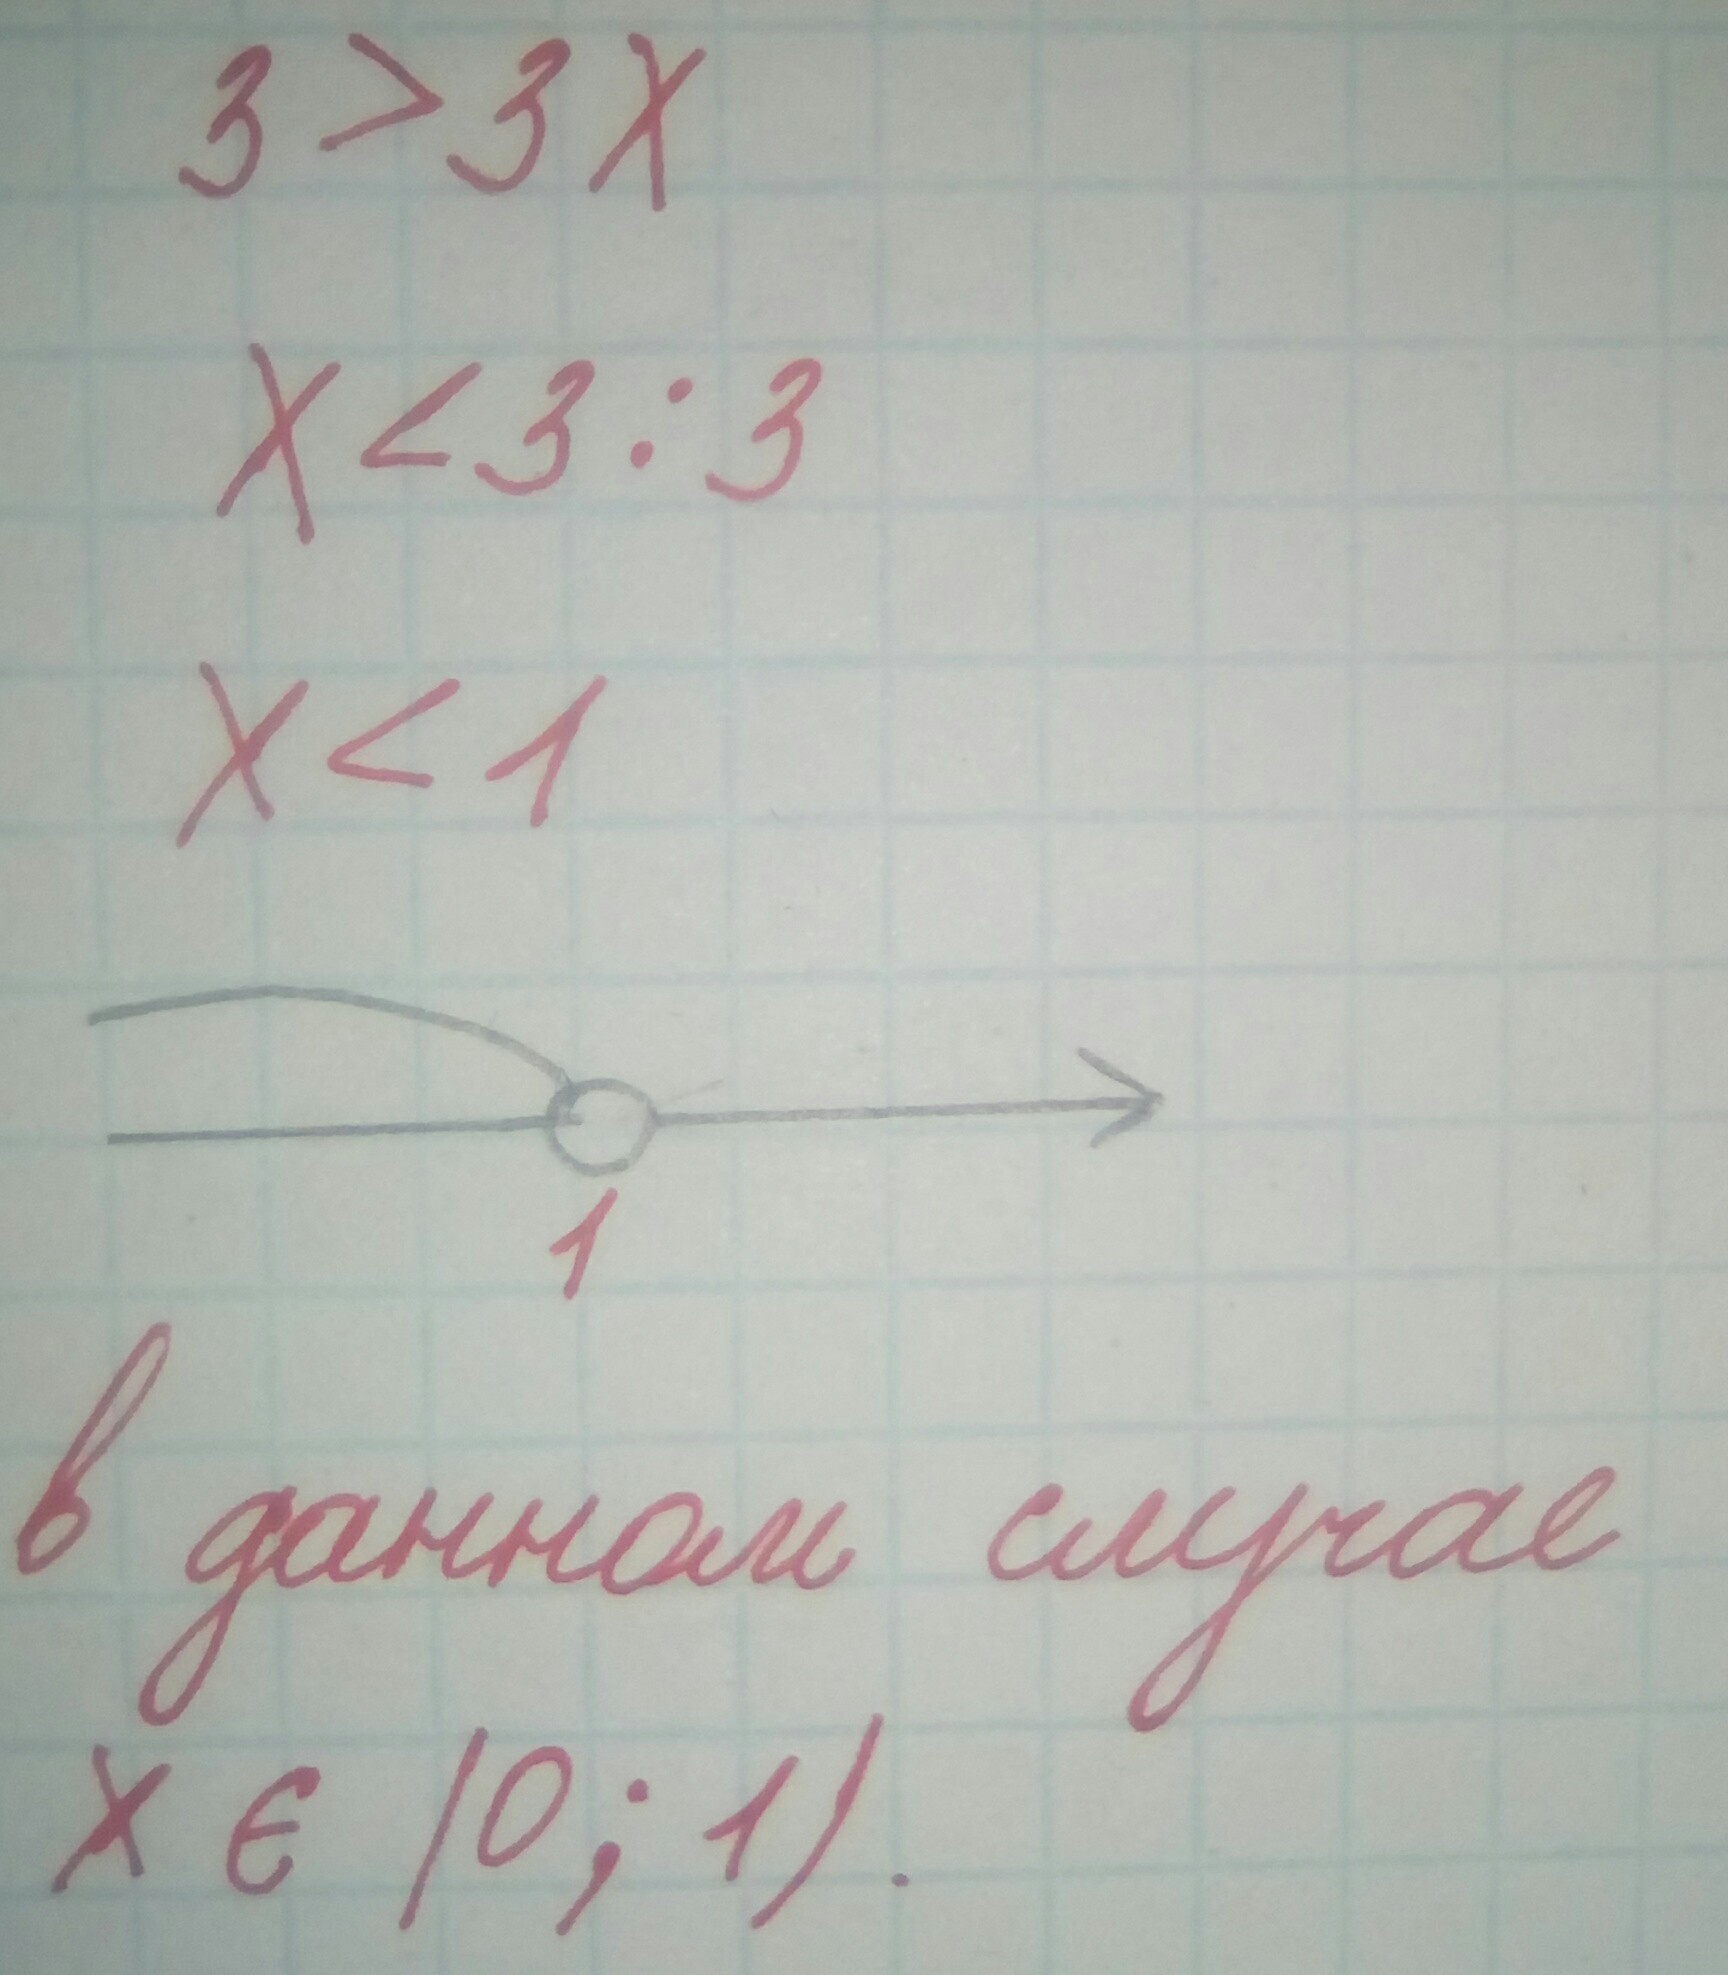 3 > 3X
X < 3 : 3
X < 1
1
в данном случае
X ∈ (0; 1).